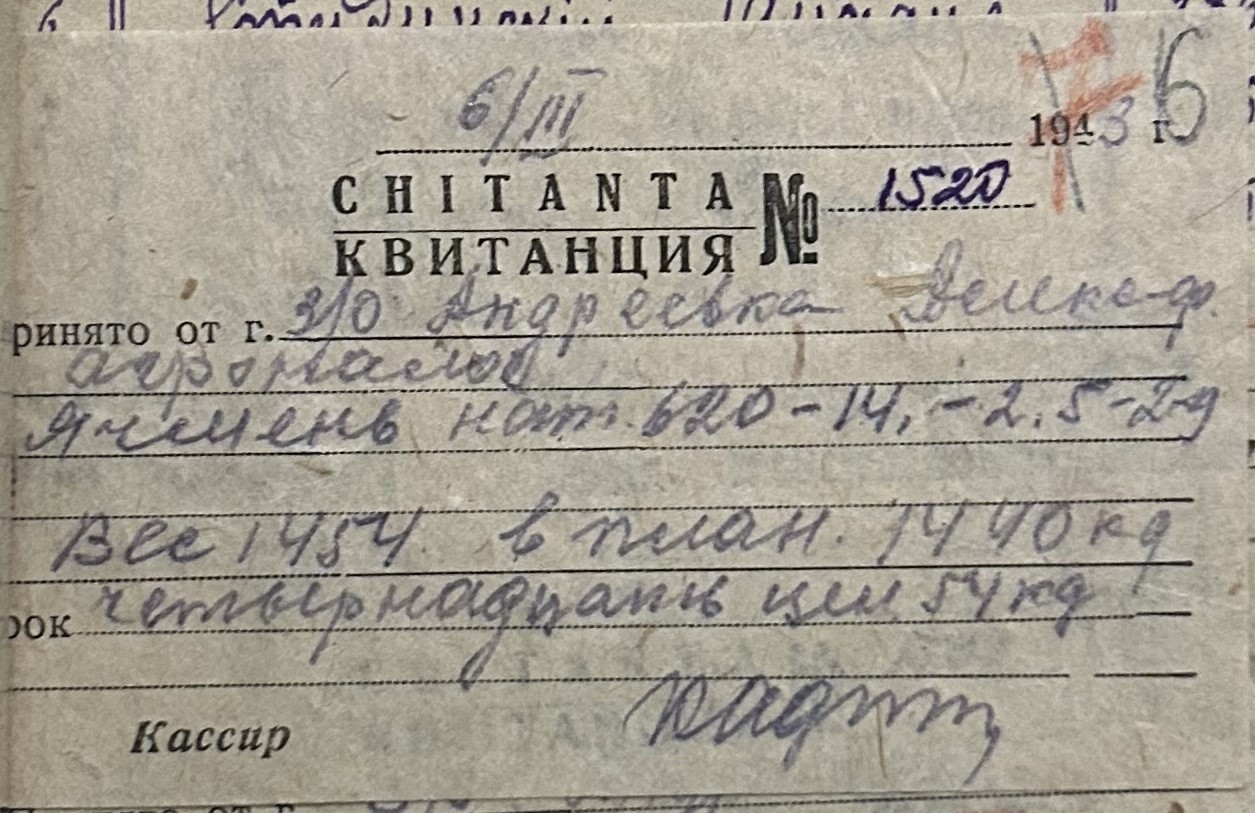 6/III 1943 г. 76
CHITANTA
КВИТАНЦИЯ № 1520
ринято от г. з/о Андреевка
Ячмень нат. 620 - 14. - 2.5 - 2-д
Вес 1454 в план. 1440 кг
рок четвернадцать цен. 54 кг
Кассир